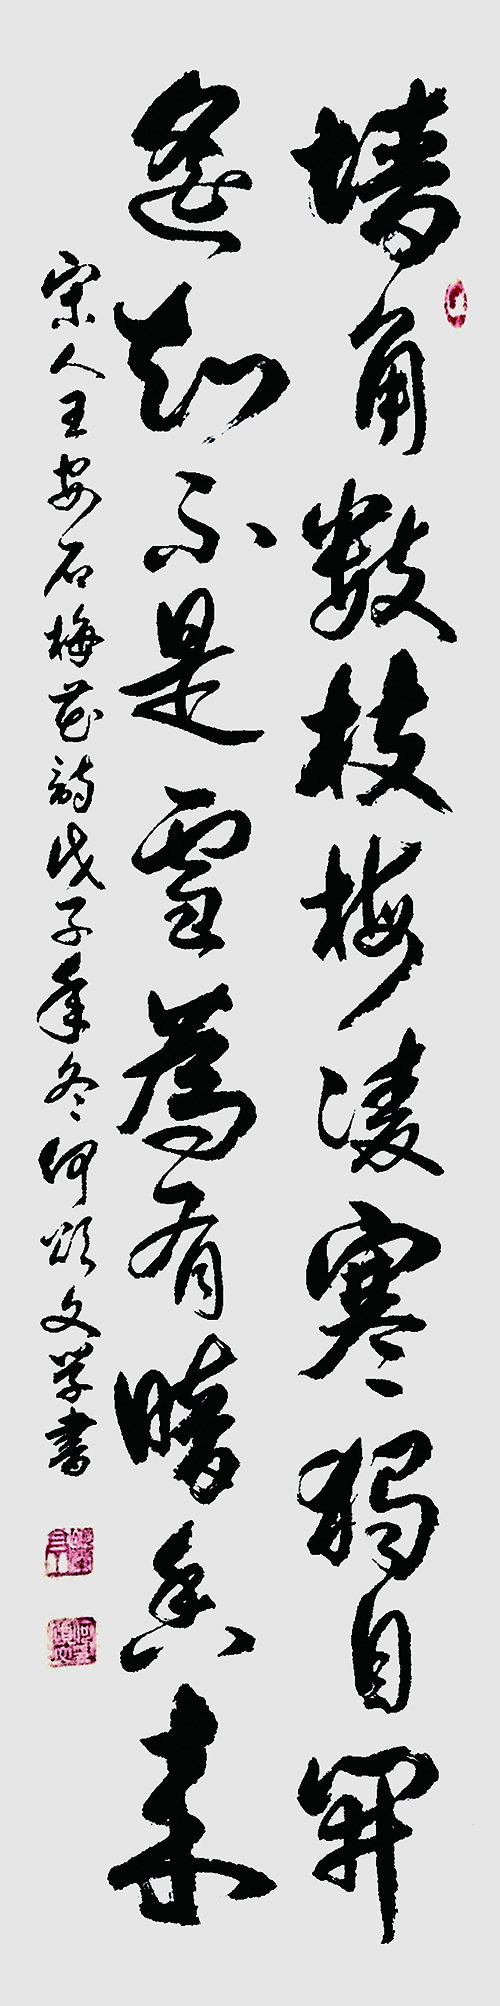 墙角数枝梅凌寒独自開
遥知不是雪為有暗香来
宋人王安石梅花詩戊子年冬何頌文学書